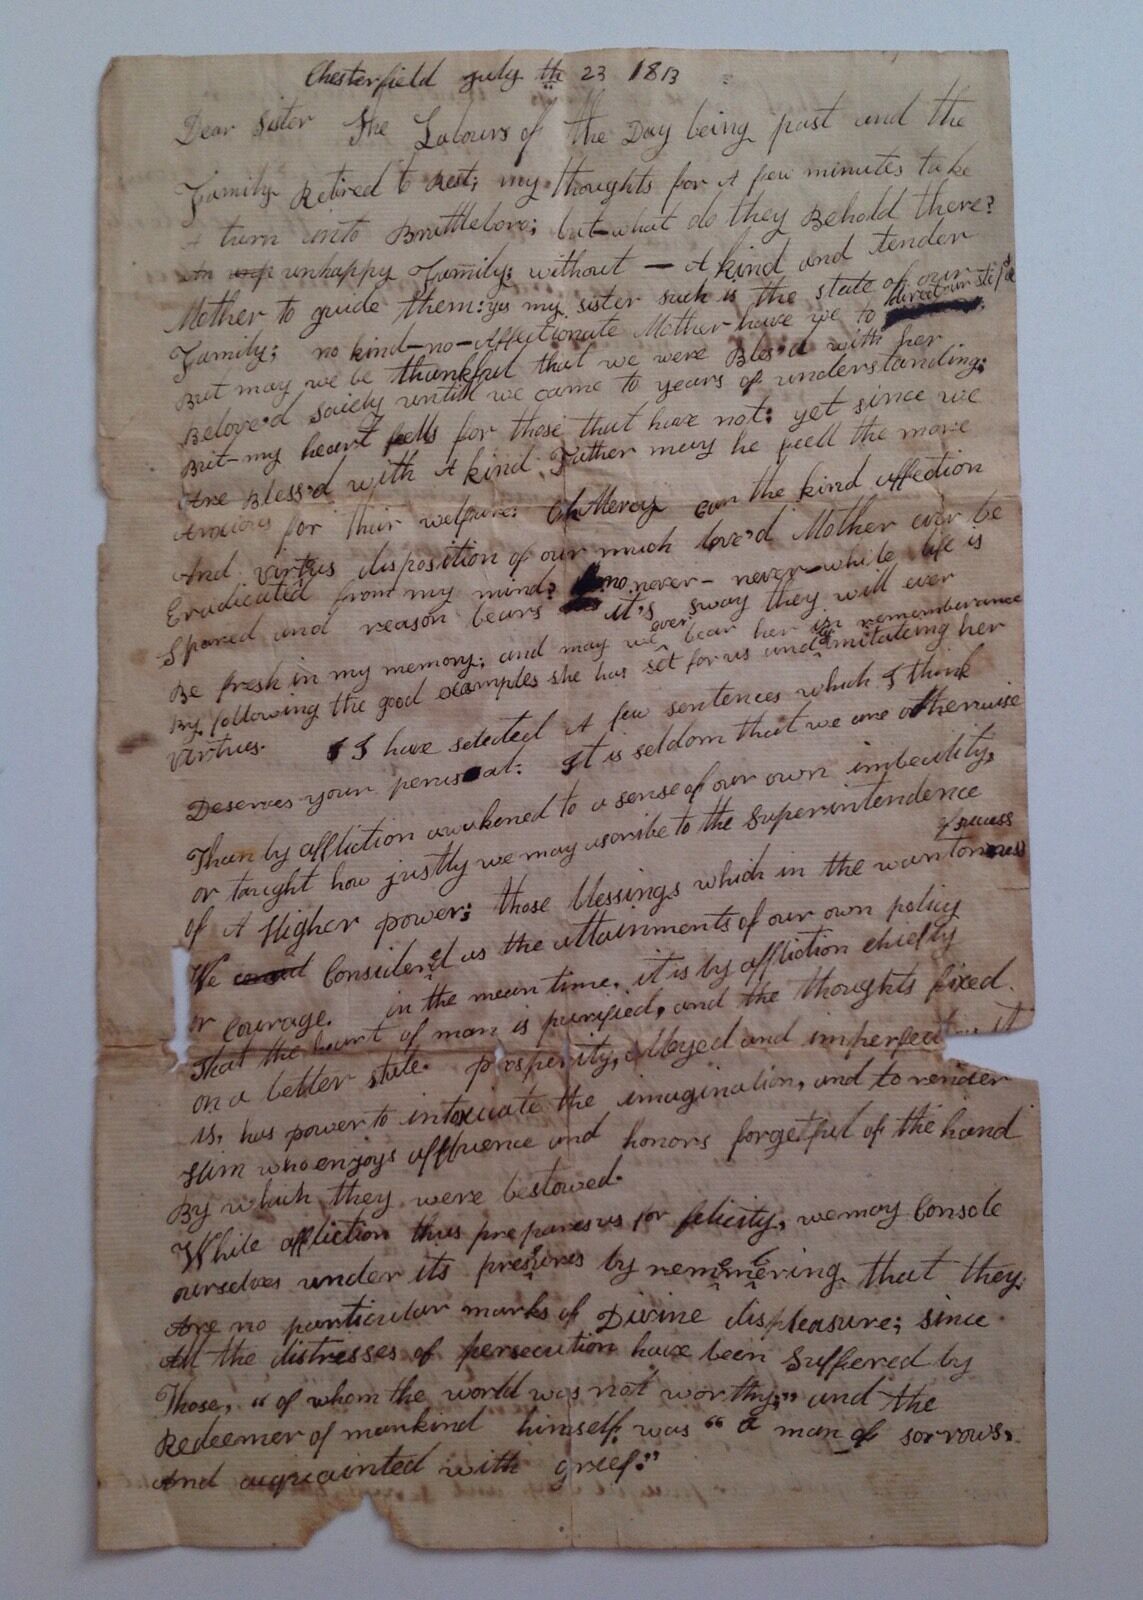 Chesterfield July th 23 1813
Dear Sister The Labours of the Day being past and the
Family Retired to Rest; my thoughts for A few minutes take
A turn into Brattleboro; but what do they Behold there?
An unhappy Family; without — A kind and tender
Mother to guide them: yes my sister such is the state of our
Family; no kind—no—Affectionate Mother have we to direct our steps
But may we be thankful that we were Bless'd with her
Belove'd saciety untill we came to years of understanding;
But my heart fells for those that have not: yet since we
Are Bless'd with A kind Father may he feell the more
Anxious for their welfare: Oh Mercy can the kind affection
And virtus disposition of our much love'd Mother ever be
Eradicated from my mind? no never— never—while life is
Spared and reason bears it's sway they will ever
Be fresh in my memory; and may we ever bear her in remembrance
By following the good examples she has set for us and of imitateing her
Virtues. I have selected A few sentences which I think
Deserves your perusal: It is seldom that we are otherwise
Than by affliction awakened to a sense of our own imbecility,
or taught how justly we may ascribe to the Superintendence
of A Higher power; those blessings which in the wantonness of success
We Considered as the attainments of our own policy
or Courage. in the mean time, it is by affliction chiefly
That the heart of man is purified, and the thoughts fixed
on a better state. prosperity, alloyed and imperfect it
is, has power to intoxicate the imagination, and to render
Him who enjoys affluence and honors forgetful of the hand
By which they were bestowed.
While affliction thus prepares us for felicity, we may Console
ourselves under its presures by rememering that they
Are no particular marks of Divine displeasure; since
All the distresses of persecution have been suffered by
Those, "of whom the world was not worthy;" and the
Redeemer of mankind himself was "a man of sorrows,
And acquainted with grief."